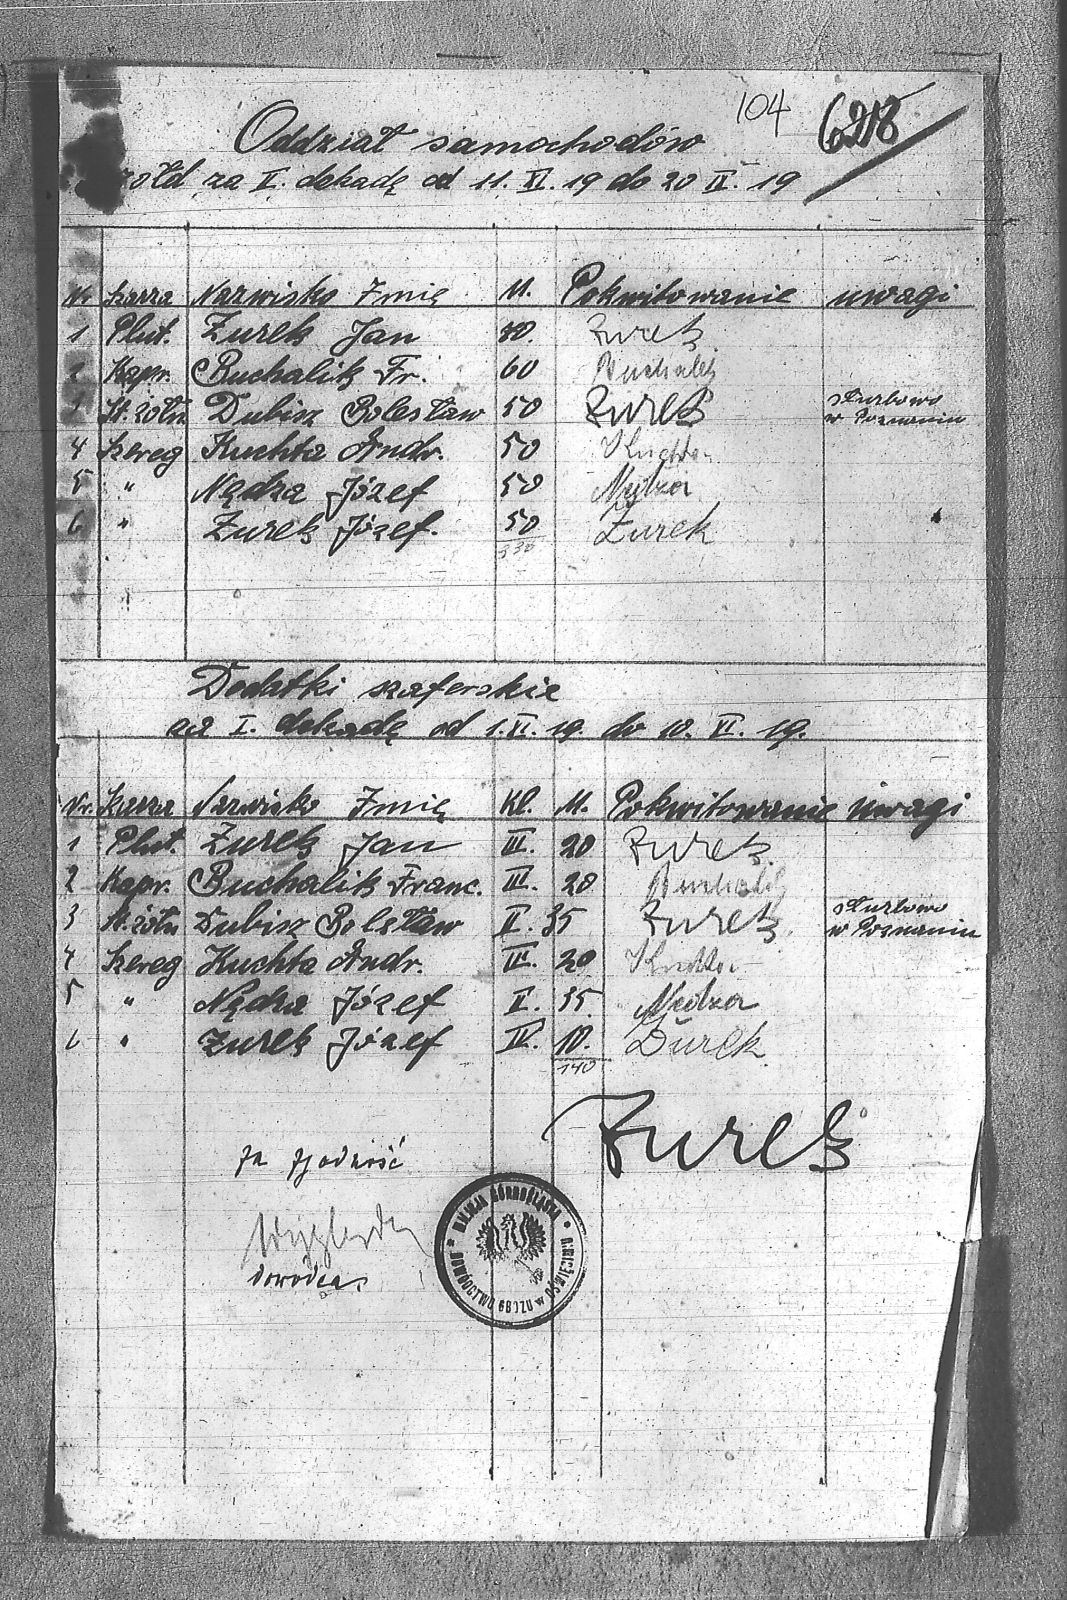 104 6218
Oddział samochodów
żołd za II. dekadę od 11. XI. 19 do 20 XI. 19
Nr Szarża Nazwisko Imię M. Pokwitowanie uwagi
1 Plut. Zurek Jan 80. Zurek
2 Kapr. Buchalik Fr. 60 Buchalik
St. żołn Dubisz Bolesław 50 Zurek służbowo w Poznaniu
4 Szereg Kuchta Andr. 50 Kuchta
5 " Nędza Józef 50 Nędza
6 " Zurek Józef. 50 Żurek
Dodatki szoferskie
za I. dekadę od 1. XI. 19. do 10. XI. 19.
Nr. Szarża Nazwisko Imię Kl. M. Pokwitowanie uwagi
1 Plut. Zurek Jan III. 20 Zurek
2 Kapr. Buchalik Franc. III. 20 Buchalik
3 St. żołn Dubisz Bolesław II. 35 Zurek służbowo w Poznaniu
4 Szereg Kuchta Andr. III. 20 Kuchta
5 " Nędza Józef II. 35. Nędza
6 " Zurek Józef IV. 10. Żurek
140
Zurek
za zgodność
dowódca
MILICJA GÓRNOŚLĄSKA
DOWÓDCTWO OBOZU w OŚWIĘCIMIU